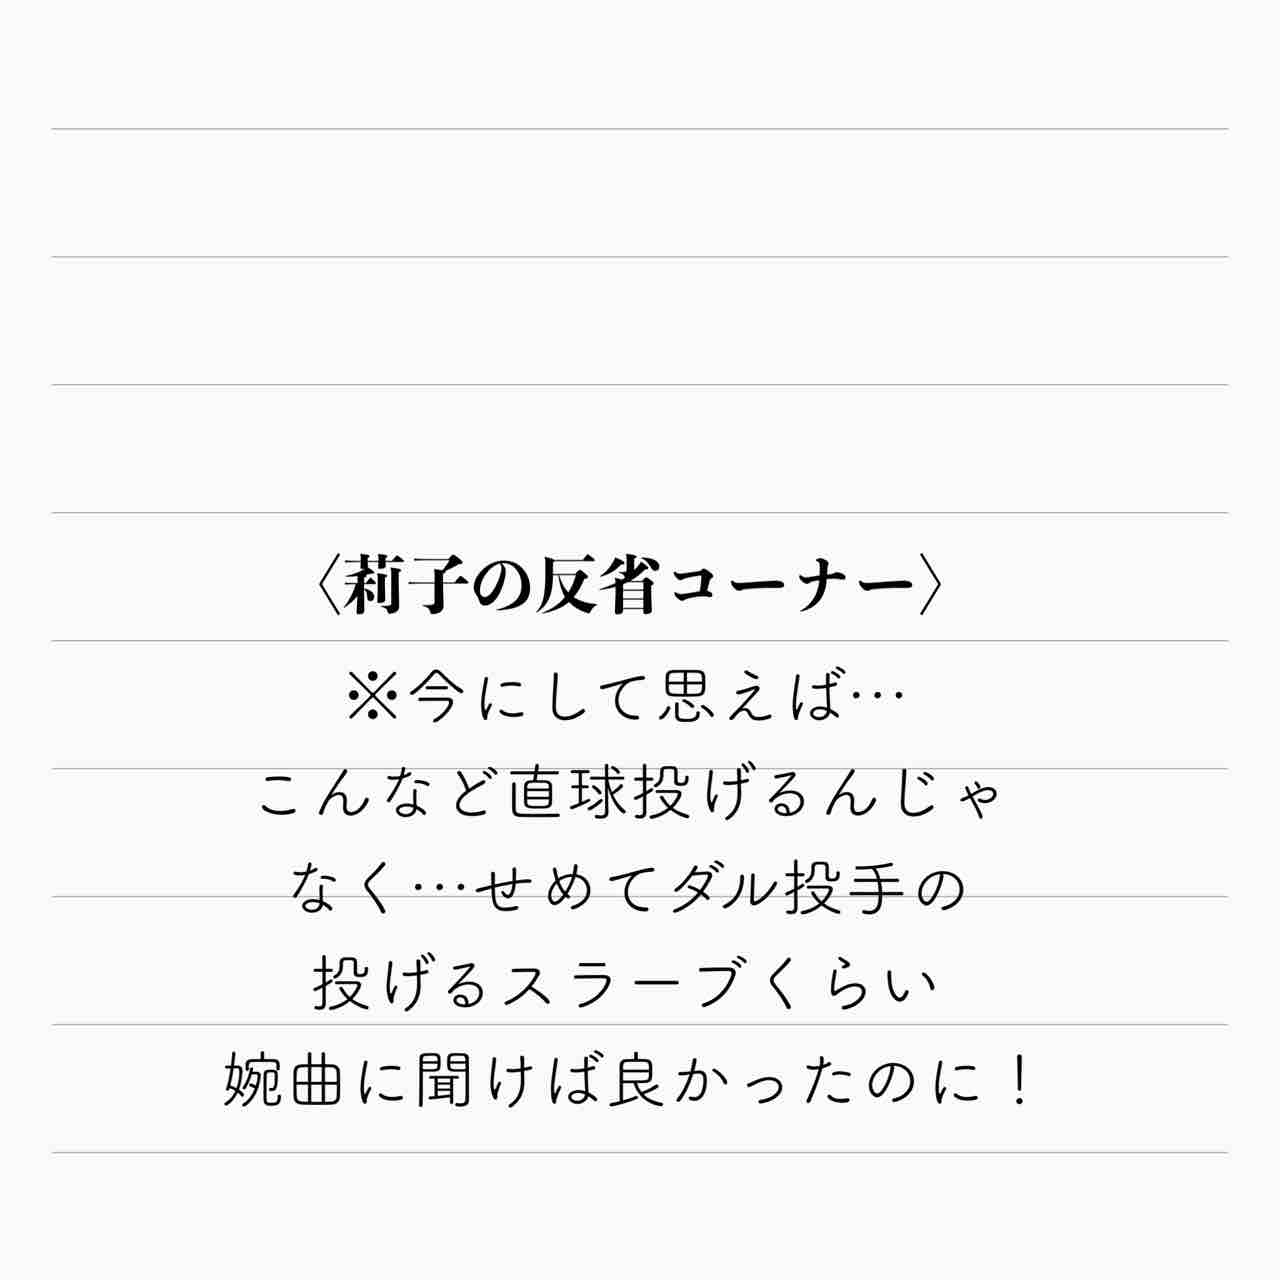 〈莉子の反省コーナー〉
※今にして思えば…
こんなど直球投げるんじゃ
なく…せめてダル投手の
投げるスラーブくらい
婉曲に聞けば良かったのに！